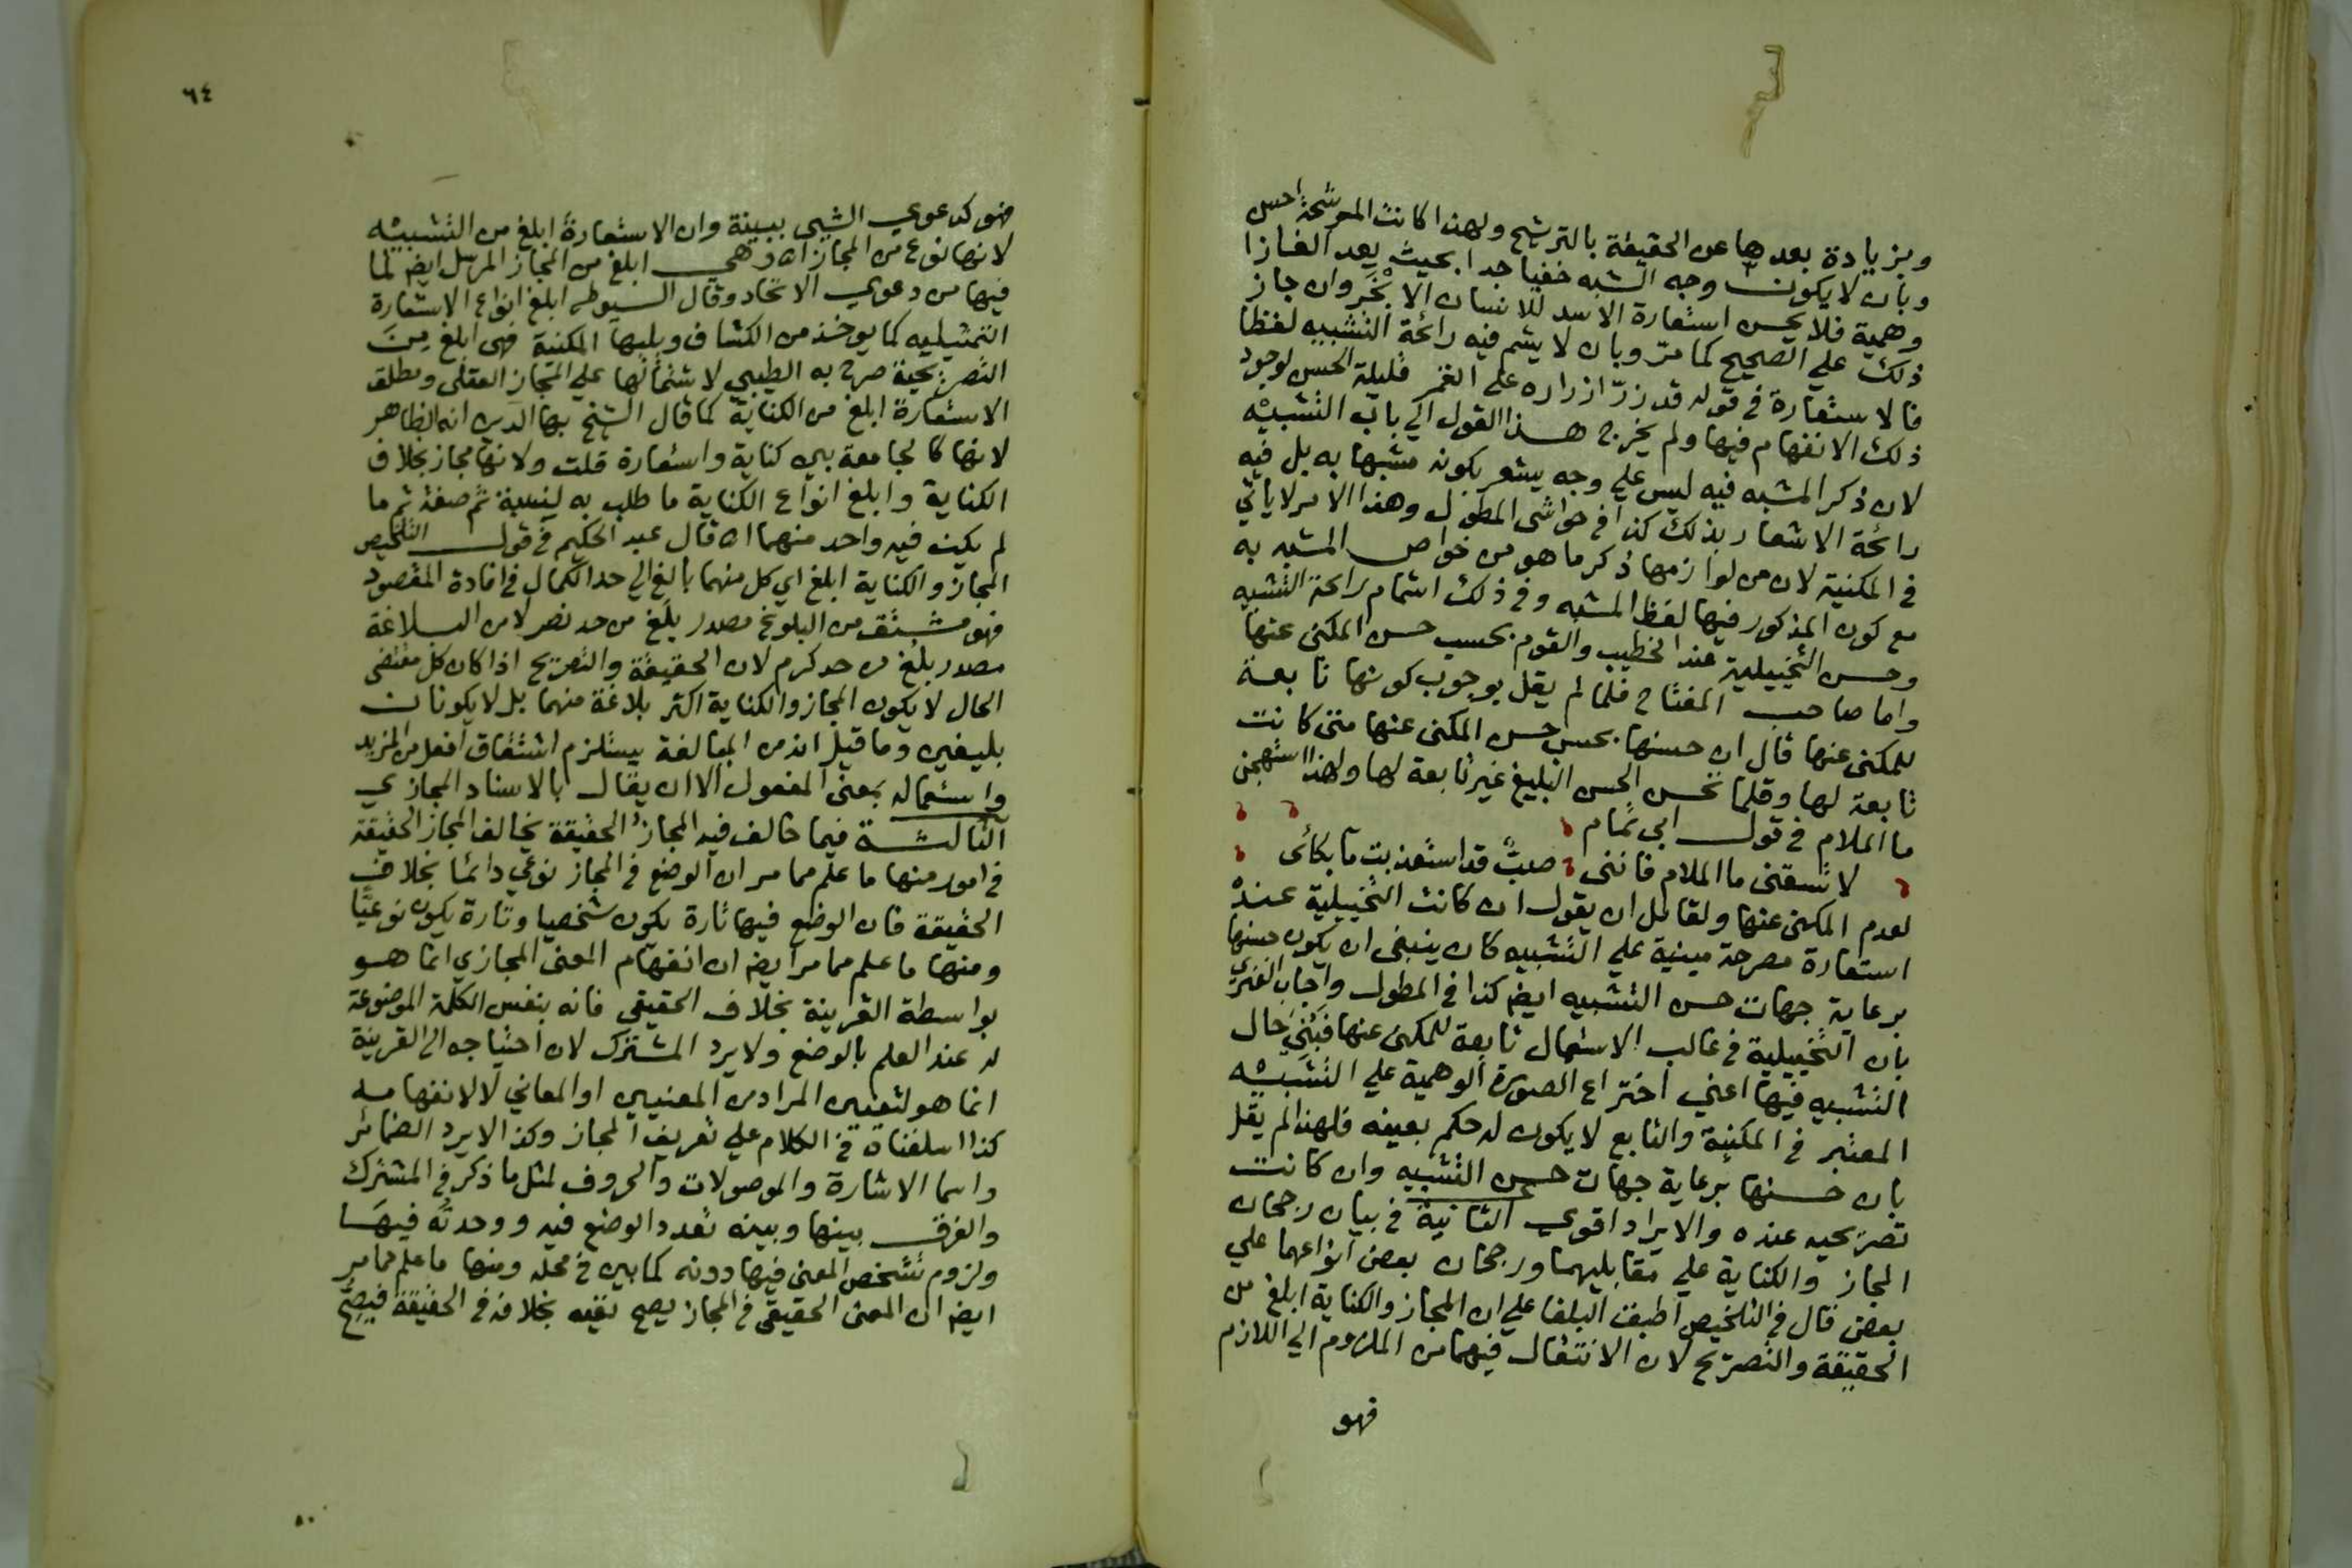 وبزيادة بعدها عن الحقيقة بالترشيح ولهذا كانت المرشحة احسن
وبان لا يكون وجه الشبه خفيا جدا بحيث يعد الغازا
وهمية فلا يحسن استعارة الاسد للانسان الابخر وان جاز
ذلك علي الصحيح كما مر وبان لا يشم فيه رائحة التشبيه لفظا
فالاستعارة في قوله قد زرّ ازراره علي القمر قليلة الحسن لوجود
ذلك الانفهام فيها ولم يخرج هذا القول الي باب التشبيه
لان ذكر المشبه فيه ليس علي وجه يشعر بكونه مشبها به بل فيه
رائحة الاشعار بذلك كذا في حواشي المطول وهذا الامر لا ياتي
في المكنية لان من لوازمها ذكر ما هو من خواص المشبه به
مع كون المذكور فيها لفظ المشبه وفي ذلك اشمام رائحة التشبيه
وحسن التخييلية عند الخطيب والقوم بحسب حسن المكني عنها
واما صاحب المفتاح فلما لم يقل بوجوب كونها تابعة
للمكني عنها قال ان حسنها بحسب حسن المكني عنها متي كانت
تابعة لها وقلما تحسن الحسن البليغ غير تابعة لها ولهذا استهجن
ما الملام في قول ابي تمام
لا تسقني ما الملام فانني صبٌّ قد استعذبت ما بكائي
لعدم المكني عنها ولقائل ان يقول ان كانت التخييلية عنده
استعارة مصرحة مبنية علي التشبيه كان ينبغي ان يكون حسنها
برعاية جهات حسن التشبيه ايضا كذا في المطول واجاب الفنري
بان التخييلية في غالب الاستعمال تابعة للمكني عنها فبُني حال
التشبيه فيها اعني اختراع الصورة الوهمية علي التشبيه
المعتبر في المكنية والتابع لا يكون له حكم بعينه فلهذا لم يقل
بان حسنها برعاية جهات حسن التشبيه وان كانت
تصريحيه عنده والايراد اقوي الثانية في بيان رجحان
المجاز والكناية علي مقابليهما ورجحان بعض انواعهما علي
بعض قال في التلخيص اطبق البلغا علي ان المجاز والكناية ابلغ من
الحقيقة والتصريح لان الانتقال فيهما من الملزوم الي اللازم
فهو
٦٤
فهو كدعوي الشيي ببينة وان الاستعارة ابلغ من التشبيه
لانها نوع من المجاز اه وهي ابلغ من المجاز المرسل ايضا لما
فيها من دعوي الاتحاد وقال السيوطي ابلغ انواع الاستعارة
التمثيليه كما يوخذ من الكشاف ويليها المكنية فهي ابلغ مِنَ
التصريحية صرح به الطيبي لاشتمالها علي المجاز العقلي ومطلق
الاستعارة ابلغ من الكناية كما قال الشيخ بها الدين انه الظاهر
لانها كالجامعة بين كناية واستعارة قلت ولانها مجاز بخلاف
الكناية وابلغ انواع الكناية ما طلب به نسبة ثم صفة ثم ما
لم يكن فيه واحد منهما اه قال عبد الحكيم في قول التلخيص
المجاز والكناية ابلغ اي كل منهما بالغ الي حد الكمال في افادة المقصود
فهو مشتق من البلوغ مصدر بلَغ من حد نصر لا من البلاغة
مصدر بلُغ من حد كرم لان الحقيقة والتصريح اذا كان كل مقتضي
الحال لا يكون المجاز والكناية اكثر بلاغة منهما بل لا يكونان
بليغين وما قيل انه من المبالغة يستلزم اشتقاق افعل من المزيد
واستعماله بمعني المفعول الا ان يقال بالاسناد المجازي
الثالثة فيما خالف فيه المجاز الحقيقة يخالف المجاز الحقيقة
في امور منها ما علم مما مر ان الوضع في المجاز نوعي دائما بخلاف
الحقيقة فان الوضع فيها تارة يكون شخصيا وتارة يكون نوعيًّا
ومنها ما علم مما مر ايضا ان انفهام المعني المجازي انما هو
بواسطة القرينة بخلاف الحقيقي فانه بنفس الكلمة الموضوعة
له عند العلم بالوضع ولا يرد المشترك لان احتياجه الي القرينة
انما هو لتعيين المراد من المعنيين او المعاني لا لانفهامه
كذا اسلفناه في الكلام علي تعريف المجاز وكذا لا يرد الضمائر
واسما الاشارة والموصولات والحروف لمثل ما ذكر في المشترك
والفرق بينها وبينه تعدد الوضع فيه ووحدته فيها
ولزوم تشخص المعني فيها دونه كما بين في محله ومنها ما علم مما مر
ايضا ان المعني الحقيقي في المجاز يصح نفيه بخلافه في الحقيقة فيصحّ